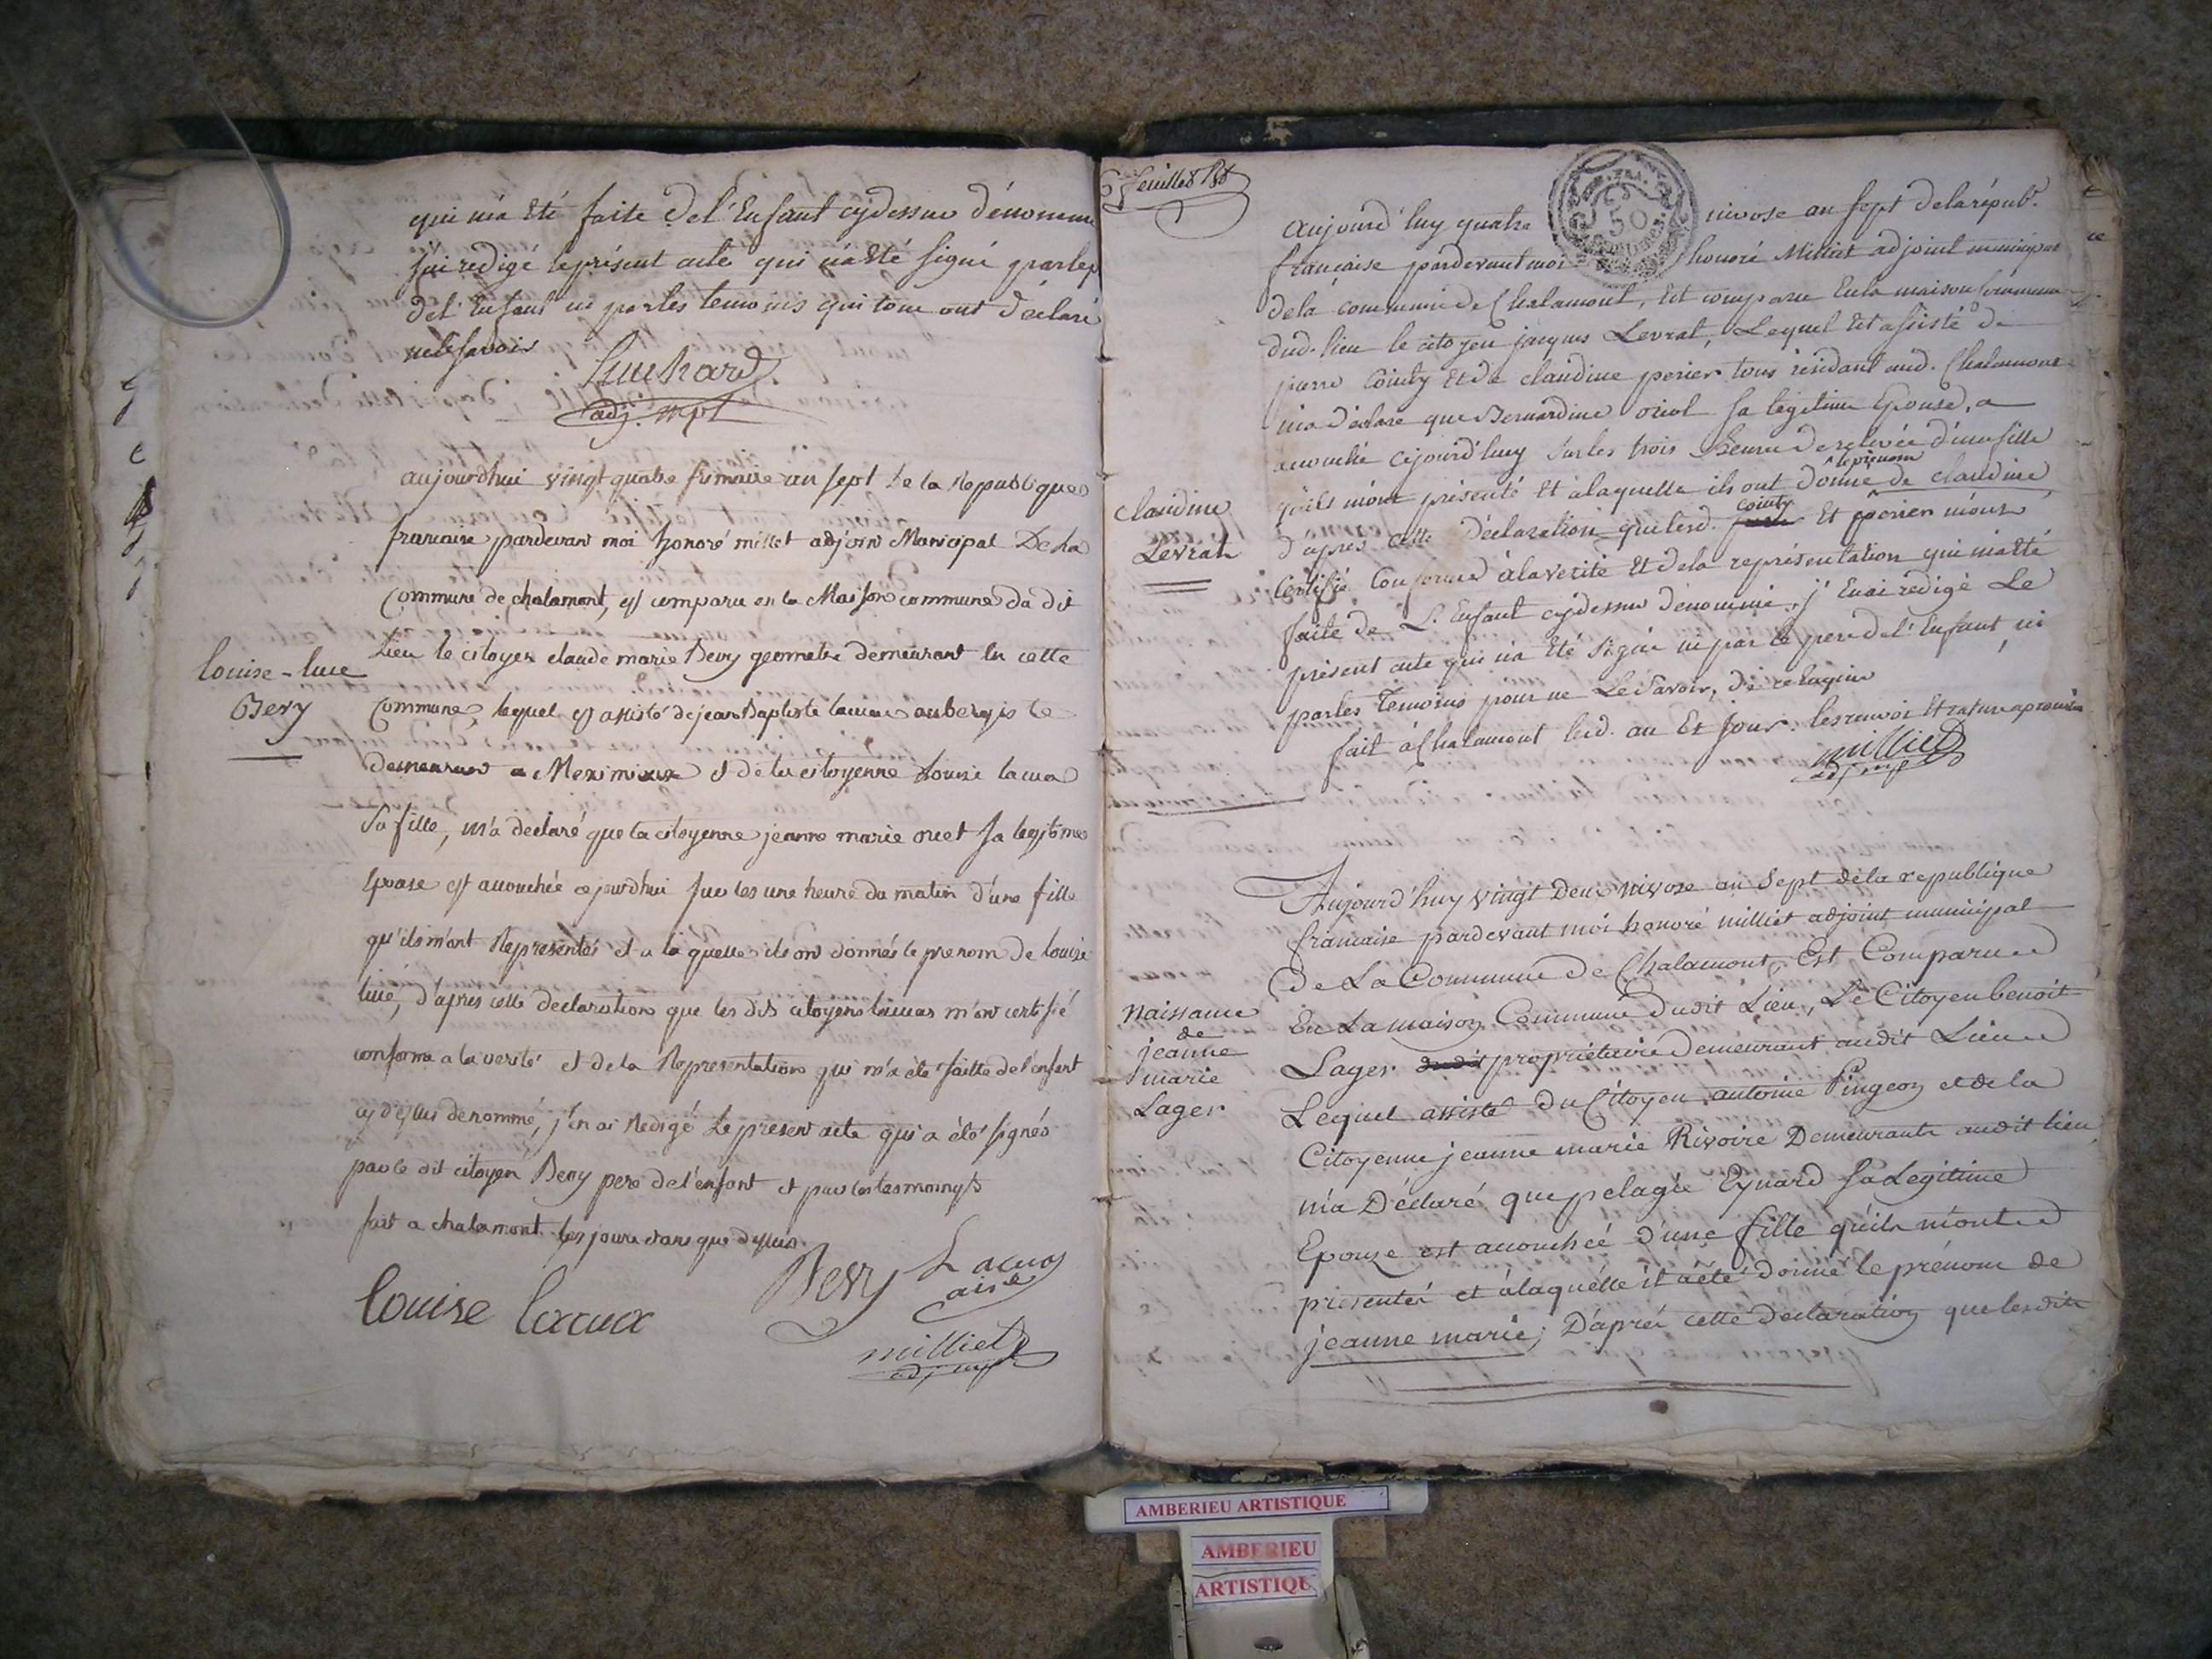 qui m'a Eté faite de l'Enfant cydessus dénommé
j'ai redigé le présent acte qui n'a Eté signé par le p
de l'Enfant ni par les temoins qui tous ont déclaré
ne le savoir
adj. mpl
aujourdhui vingt quatre frimaire an sept de la Republique
francaise pardevant moi honoré millet adjoin Municipal De la
Commune de chalamont, est comparu en la Maison commune du dit
Lieu le citoyen claude marie Bevy geometre demeurant en cette
Commune, lequel est assisté de jean Baptiste lacua aubergiste
demeurant a Meximieux et de la citoyenne Louise lacua
sa fille, m'a declaré que la citoyenne jeanne marie ouet sa legitime
Epouse est accouchée cejourdhui sur les une heure du matin d'une fille
qu'ils m'ont Representés et a la quelle ils on donnés le prenom de louise
luce, d'apres cette declaration que les dits citoyens lacuas m'ont certifié
conforme a la verité et de la Representation qui m'a été faitte de l'enfant
cy dessus denommé, j'en ai Redigé le present acte qui a été signés
par le dit citoyen Bevy pere de l'enfant et par les tesmoings
fait a chalamont les jours et ans que dessus
louise-luce
Bevy
louise lacua
Bevy
Lacua
ainé
milliet
adj mpl
6 feuillet
aujourd'huy quatre nivose an sept de la répub.
française pardevant moi honoré Milliet adjoint municipal
de la commune de Chalamont, Est comparu En la maison commune
dud. lieu le citoyen jacques Levrat, Lequel Est assisté de
pierre Cointy Et de claudine perier tous résidant aud. Chalamont
m'a déclaré que Bernardine oriol sa légitime Epouse, a
accouché cejourd'huy sur les trois heures de relevée d'une fille
qu'ils m'ont présenté Et a laquelle ils ont donné le prenom de claudine
d'après cette déclaration que lesd. cointy Et perier m'ont
Certifié Conforme à la vérité Et de la représentation qui m'a Eté
faite de L'Enfant cydessus dénommé, j'En ai rédigé Le
présent acte qui n'a Eté signé ni par le pere de l'Enfant, ni
par les Temoins pour ne Le savoir, de ce requis
fait à Chalamont lesd. an Et jour. les renvoi Et rature aprouvés
milliet
adj mpl
claudine
Levrat
Aujourd'huy vingt Deux nivose an Sept de la republique
francaise pardevant moi honoré milliet adjoint municipal
De La Commune de Chalamont, Est Comparu
En La maison Commune Dudit Lieu, Le Citoyen benoit
Lager dudit propriétaire Demeurant audit Lieu
Lequel assisté Du Citoyen antoine Pingeon et de la
Citoyenne jeanne marie Rivoire Demeurants audit lieu
m'a Déclaré que pelagie Eynard Sa Légitime
Epouze est accouchée d'une fille qu'ils m'ont
présentée et à laquelle il a été donné le prénom de
jeanne marie; D'après cette declaration que lesdits
Naissance
de
jeanne
marie
Lager
50
AMBERIEU ARTISTIQUE
AMBERIEU
ARTISTIQU